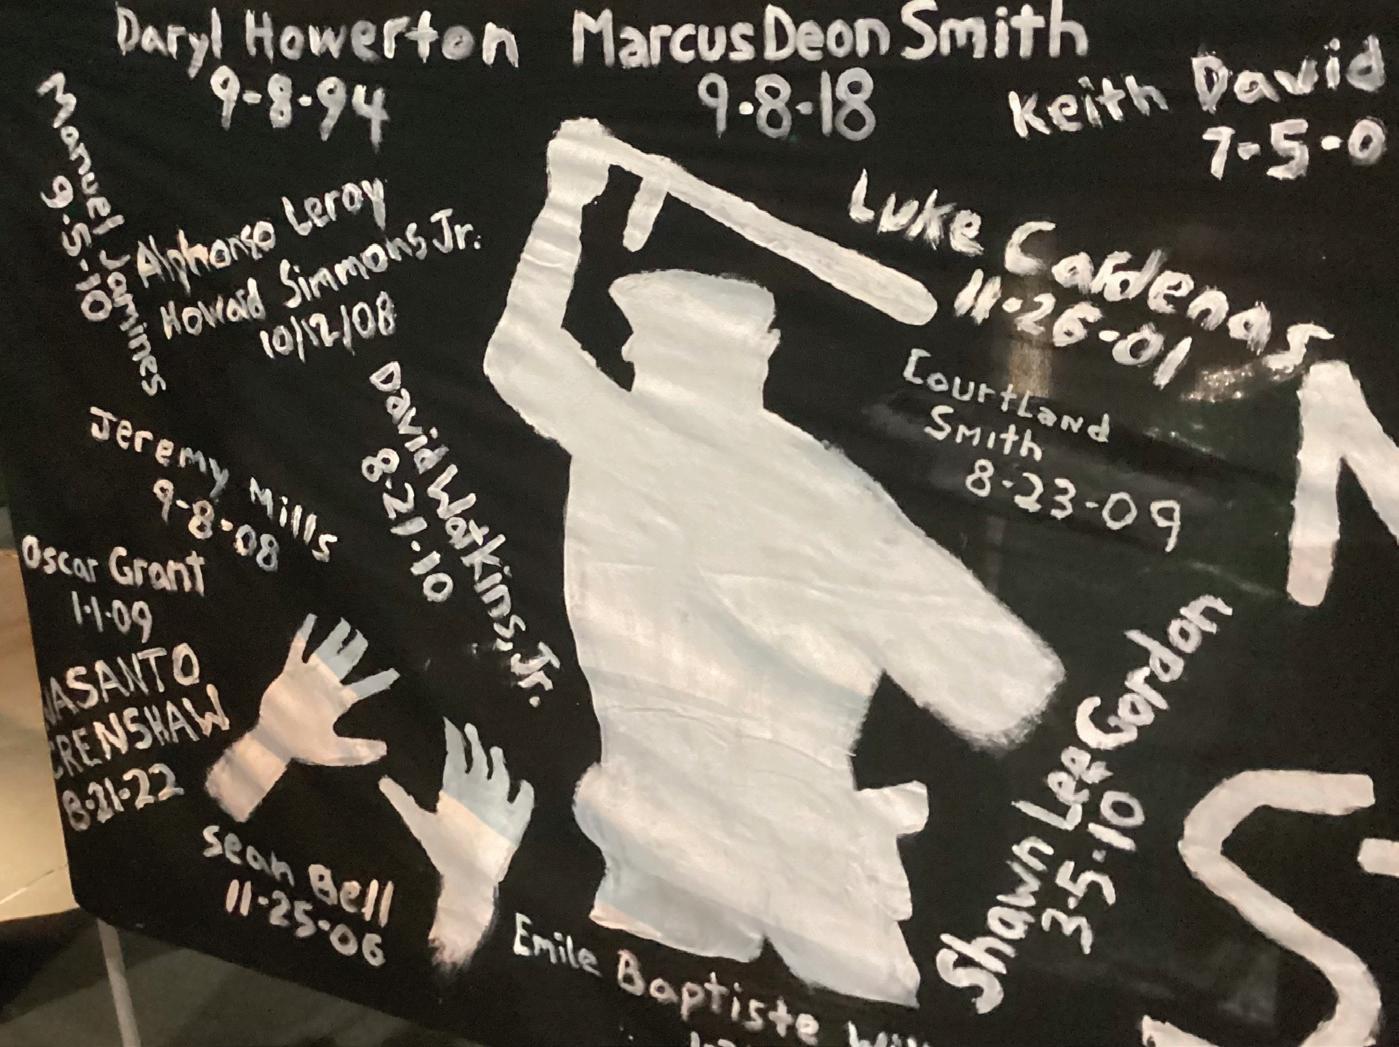 Daryl Howerton
9-8-94
Marcus Deon Smith
9-8-18
Keith David
7-5-0
Manuel Jamines
9-5-10
Alphonso Leroy
Howard Simmons Jr.
10/12/08
Luke Cardenas
11-26-01
Courtland
Smith
8-23-09
David Watkins, Jr.
8-21-10
Jeremy Mills
9-8-08
Oscar Grant
1-1-09
NASANTO
CRENSHAW
8-21-22
Sean Bell
11-25-06
Shawn Lee Gordon
3-5-10
Emile Baptiste